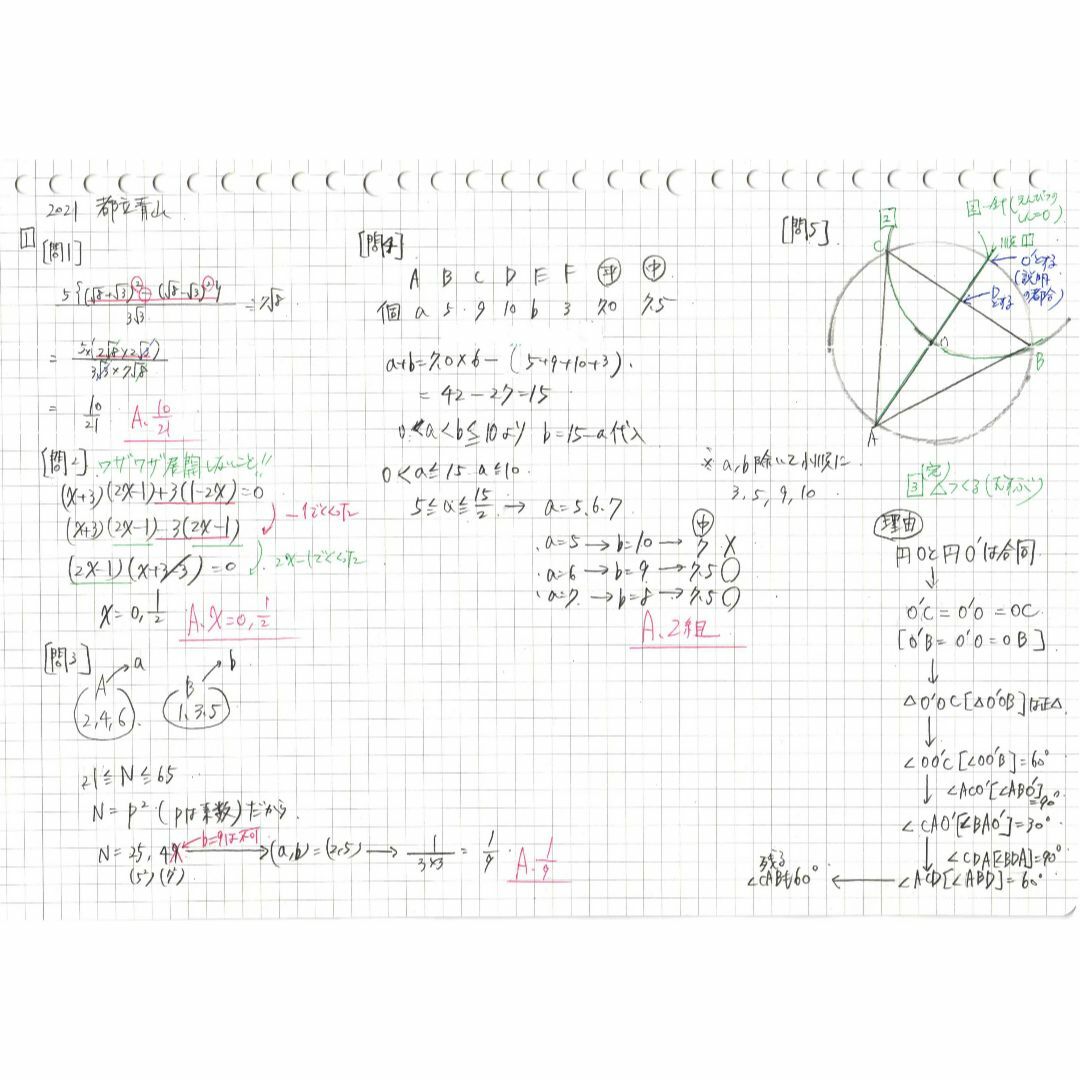 2021 都立青山
1
[問1]
5{(√8+√3)²-(√8-√3)²} ÷7√8
3√3
= 5×(2√8×2√3)
3√3×7√8
= 10/21 A. 10/21
[問2] ワザワザ展開しないこと!!
(x+3)(2x-1)+3(1-2x)=0
(x+3)(2x-1)-3(2x-1) -1でくくった
(2x-1)(x+3-3)=0 2x-1でくくった
x=0, 1/2 A. x=0, 1/2
[問3]
A→a B→b
2,4,6 1,3,5
21≦N≦65
N=p² (pは素数)だから
N=25, 49 b=9は不可 →(a,b)=(2,5) → 1/3×3 = 1/9 A. 1/9
(5²) (7²)
[問4]
A B C D E F 平 中
個 a 5 9 10 b 3 7.0 7.5
a+b=7.0×6-(5+9+10+3)
=42-27=15
0<a<b≦10より b=15-a代入
0<a≦15-a≦10
5≦a≦15/2 → a=5.6.7
※a,b除いて小順に
3,5,9,10
中
・a=5→b=10→7 ×
・a=6→b=9→7.5○
・a=7→b=8→7.5○
A. 2組
[問5]
2
C
1
O'とする
(説明の都合)
Dとする
O
B
A
3 △つくる(むすぶ)
理由
円Oと円O'は合同
↓
O'C=O'O=OC
[O'B=O'O=OB]
↓
△O'OC[△O'OB]は正△
↓
∠OO'C[∠OO'B]=60°
↓ ∠ACO'[∠ABO']=90°
∠CAO'[∠BAO']=30°
↓ ∠CDA[∠BDA]=90°
∠ACD[∠ABD]=60°
←
残る
∠CABも60°